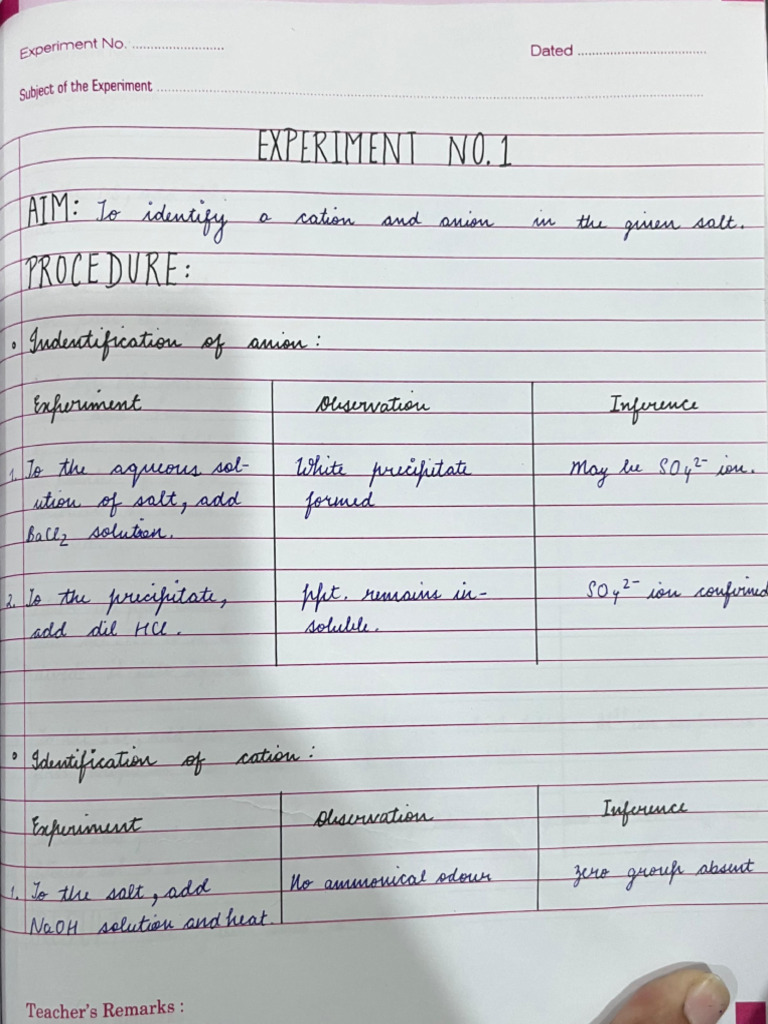 Experiment No. ........................ Dated ..................................
Subject of the Experiment ..........................................................................................
EXPERIMENT NO. 1
AIM: To identify a cation and anion in the given salt.
PROCEDURE:
• Indentification of anion :
Experiment Observation Inference
1. To the aqueous sol- White precipitate May be SO₄²⁻ ion.
ution of salt, add formed
BaCl₂ solution.
2. To the precipitate, ppt. remains in- SO₄²⁻ ion confirmed
add dil HCl. soluble.
• Identification of cation :
Experiment Observation Inference
1. To the salt, add No ammonical odour zero group absent
NaOH solution and heat.
Teacher's Remarks :